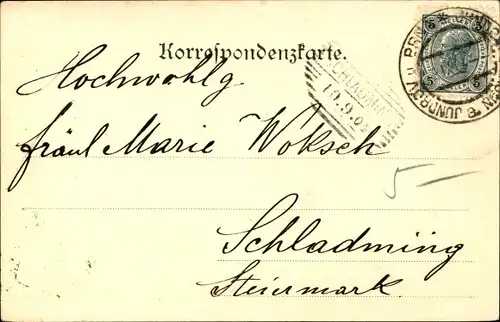 Korrespondenzkarte.
Hochwohlg
fräul Marie Woksch
Schladming
Steiermark
SCHLADMING
19.9.02
5 —